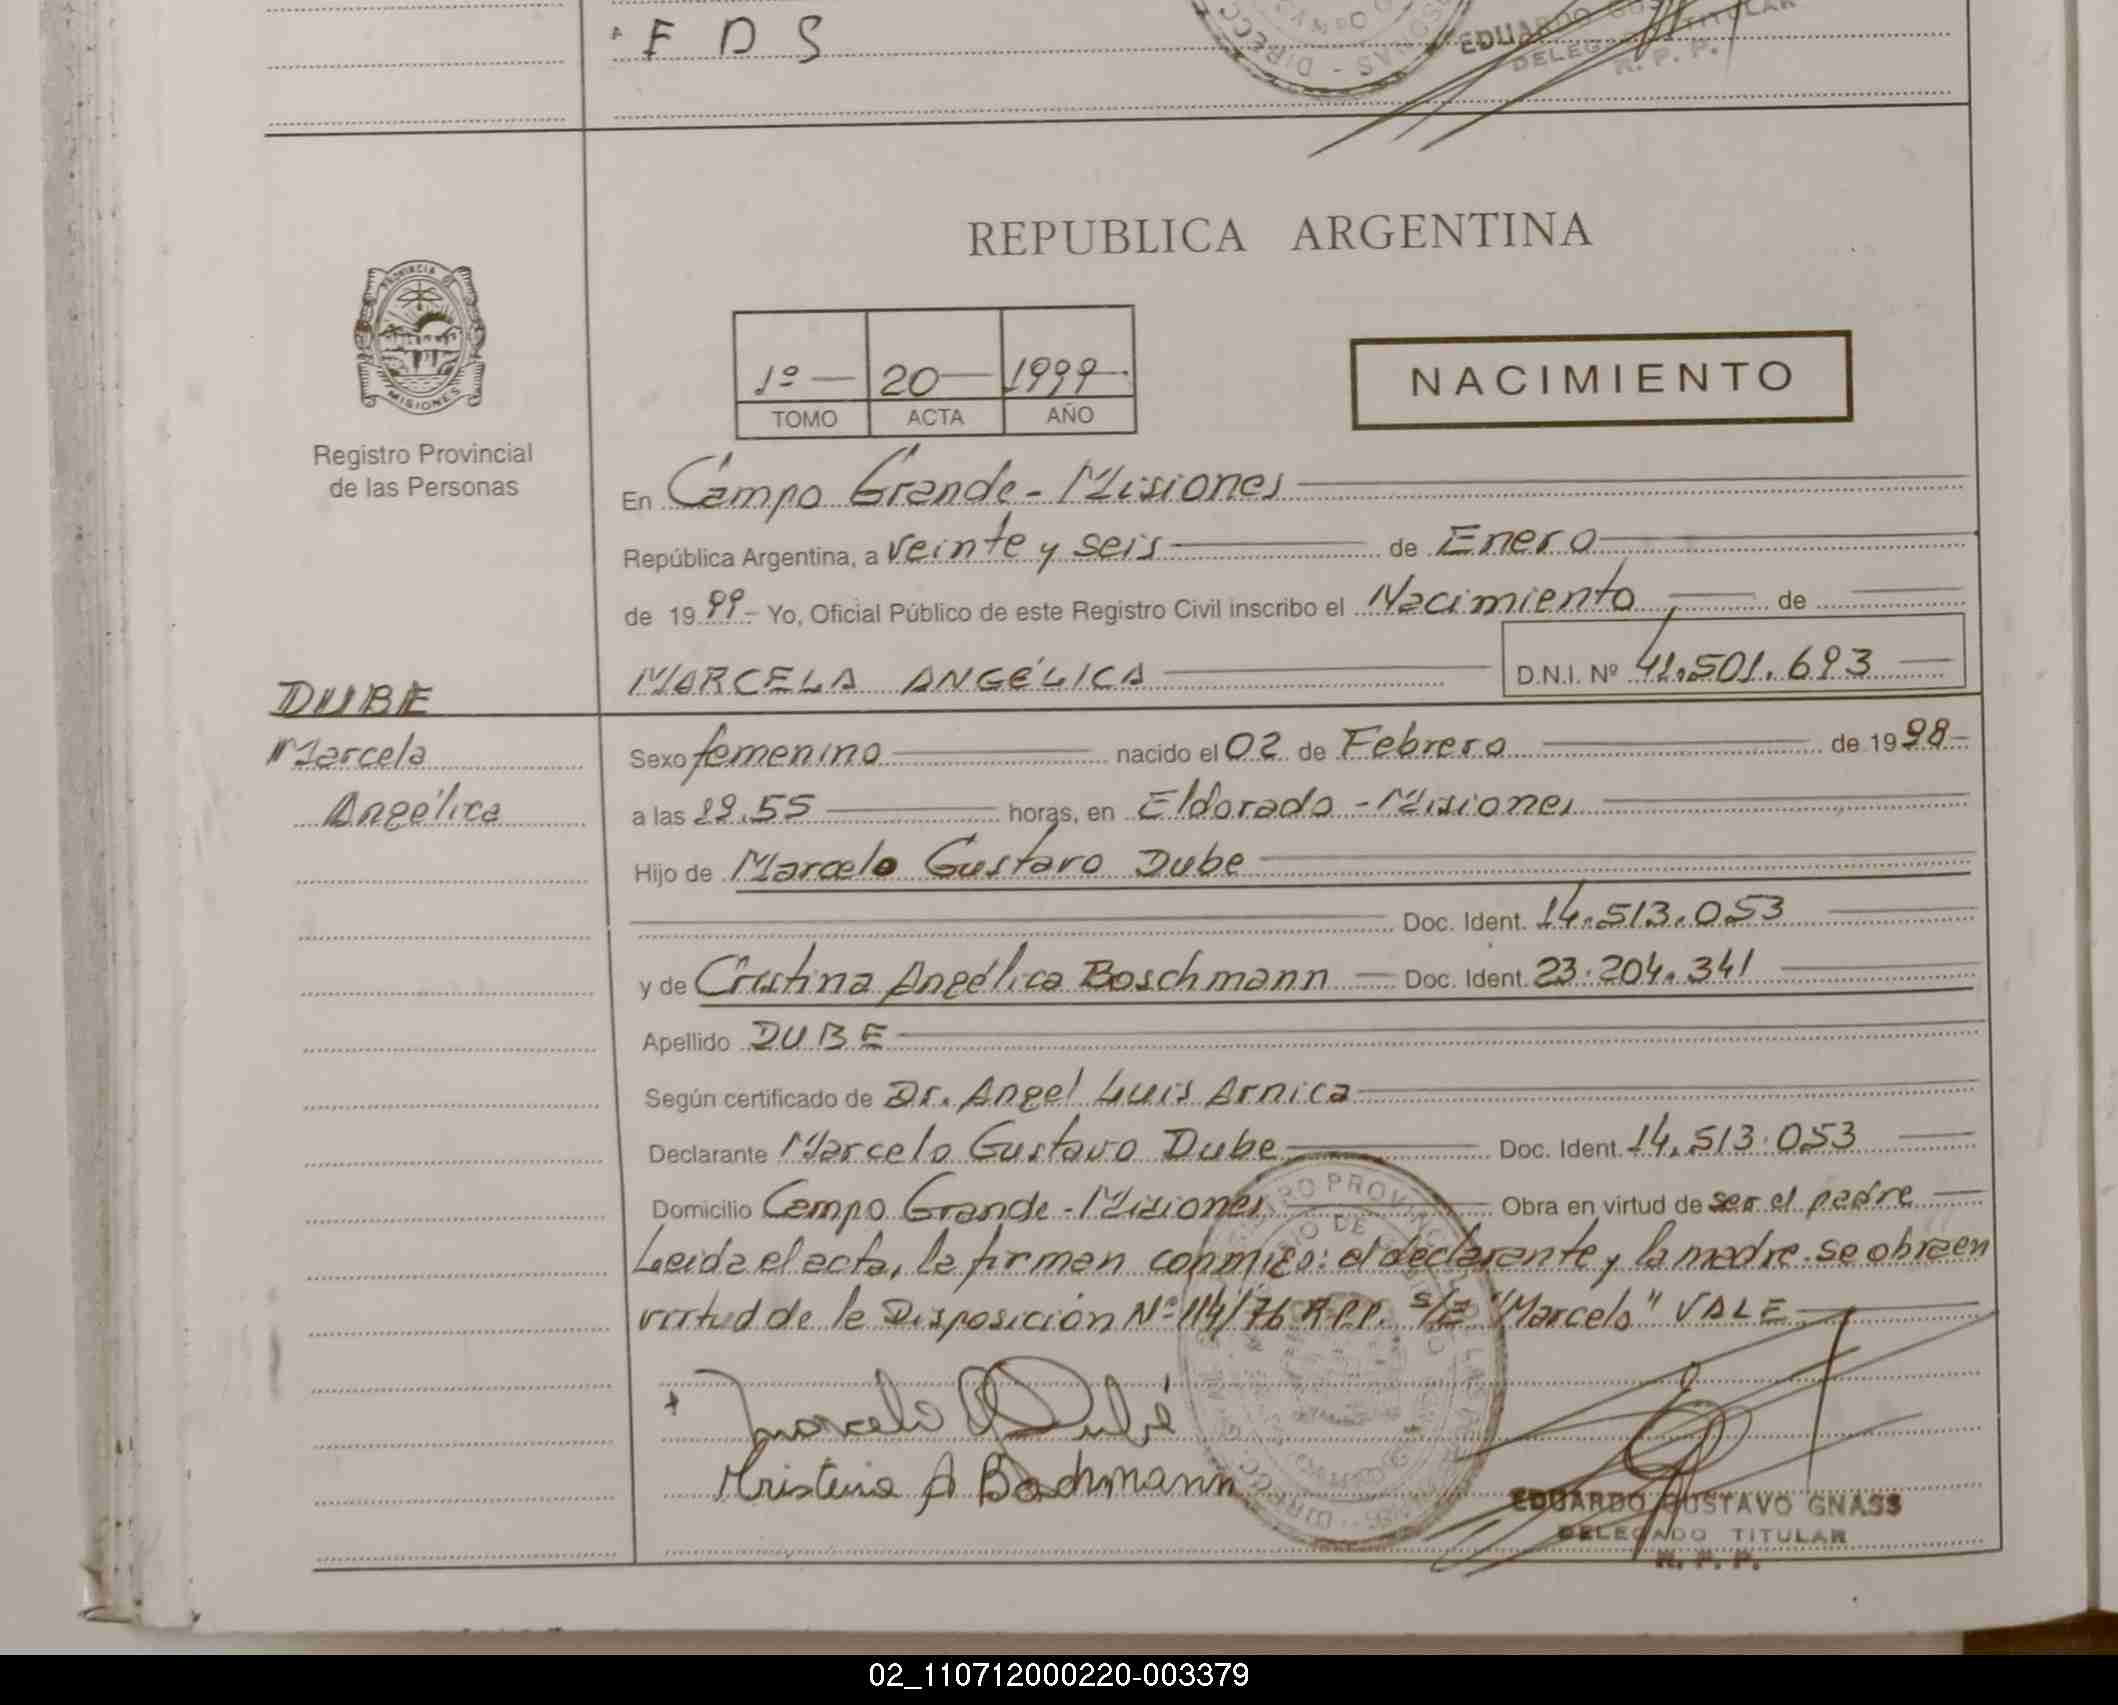 F D S
EDUARDO
DELEGADO TITULAR
R. P. P.
REPUBLICA ARGENTINA
PROVINCIA DE MISIONES
Registro Provincial
de las Personas
1º — 20 — 1999
TOMO ACTA AÑO
NACIMIENTO
En Campo Grande - Misiones
República Argentina, a veinte y seis de Enero
de 1999 - Yo, Oficial Público de este Registro Civil inscribo el Nacimiento, de
MARCELA ANGÉLICA D.N.I. Nº 41.501.693
DUBE
Marcela
Angélica
Sexo femenino nacido el 02 de Febrero de 1998 -
a las horas, en Eldorado - Misiones
Hijo de Marcelo Gustavo Dube
Doc. Ident. 14.513.053
y de Cristina Angélica Boschmann Doc. Ident. 23.204.341
Apellido DUBE
Según certificado de Dr. Angel Luis Arnica
Declarante Marcelo Gustavo Dube Doc. Ident. 14.513.053
Domicilio Campo Grande - Misiones Obra en virtud de ser el padre
Leida el acta, la firman conmigo: el declarante y la madre. se obra en
virtud de la Disposición Nº 114/76 R.P.P. s/r "Marcelo" VALE
Marcelo G Dubé
Kristina A Boschmann
EDUARDO GUSTAVO GNASS
DELEGADO TITULAR
R. P. P.
02_110712000220-003379